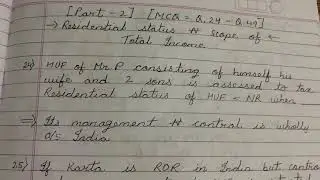 [Part - 2] [MCQ = Q.24 - Q.49]
→ Residential status & Scope of ←
Total Income
24) HUF of Mr P consisting of himself his
wife and 2 sons is assessed to tax
Residential status of HUF = NR when
⇒ Its management & control is wholly
o/s India
25) If Karta is ROR in India but control